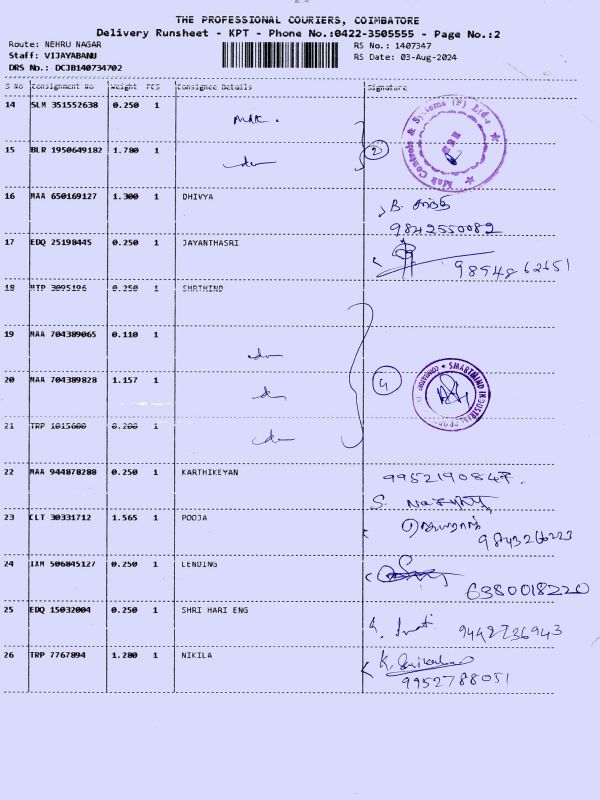 THE PROFESSIONAL COURIERS, COIMBATORE
Delivery Runsheet - KPT - Phone No.:0422-3505555 - Page No.:2
Route: NEHRU NAGAR RS No.: 1407347
Staff: VIJAYABANU RS Date: 03-Aug-2024
DRS No.: DCJB140734702
S No Consignment No Weight PCS Consignee Details Signature
14 SLM 351552638 0.250 1
15 BLR 1950649182 1.780 1 2
16 MAA 650169127 1.300 1 DHIVYA B.
9842550082
17 EDQ 25198445 0.250 1 JAYANTHASRI
9894862651
18 MTP 3095196 0.250 1 SMRTMIND
19 MAA 704389065 0.110 1
20 MAA 704389828 1.157 1 4
SMARTMIND INDUSTRIAL
21 TRP 1015600 0.200 1
22 MAA 944878288 0.250 1 KARTHIKEYAN
S.
23 CLT 30331712 1.565 1 POOJA
9843266223
24 IXM 506845127 0.250 1 LENDING
6380018220
25 EDQ 15032004 0.250 1 SHRI HARI ENG 9442736943
26 TRP 7767894 1.280 1 NIKILA K.
9952788051